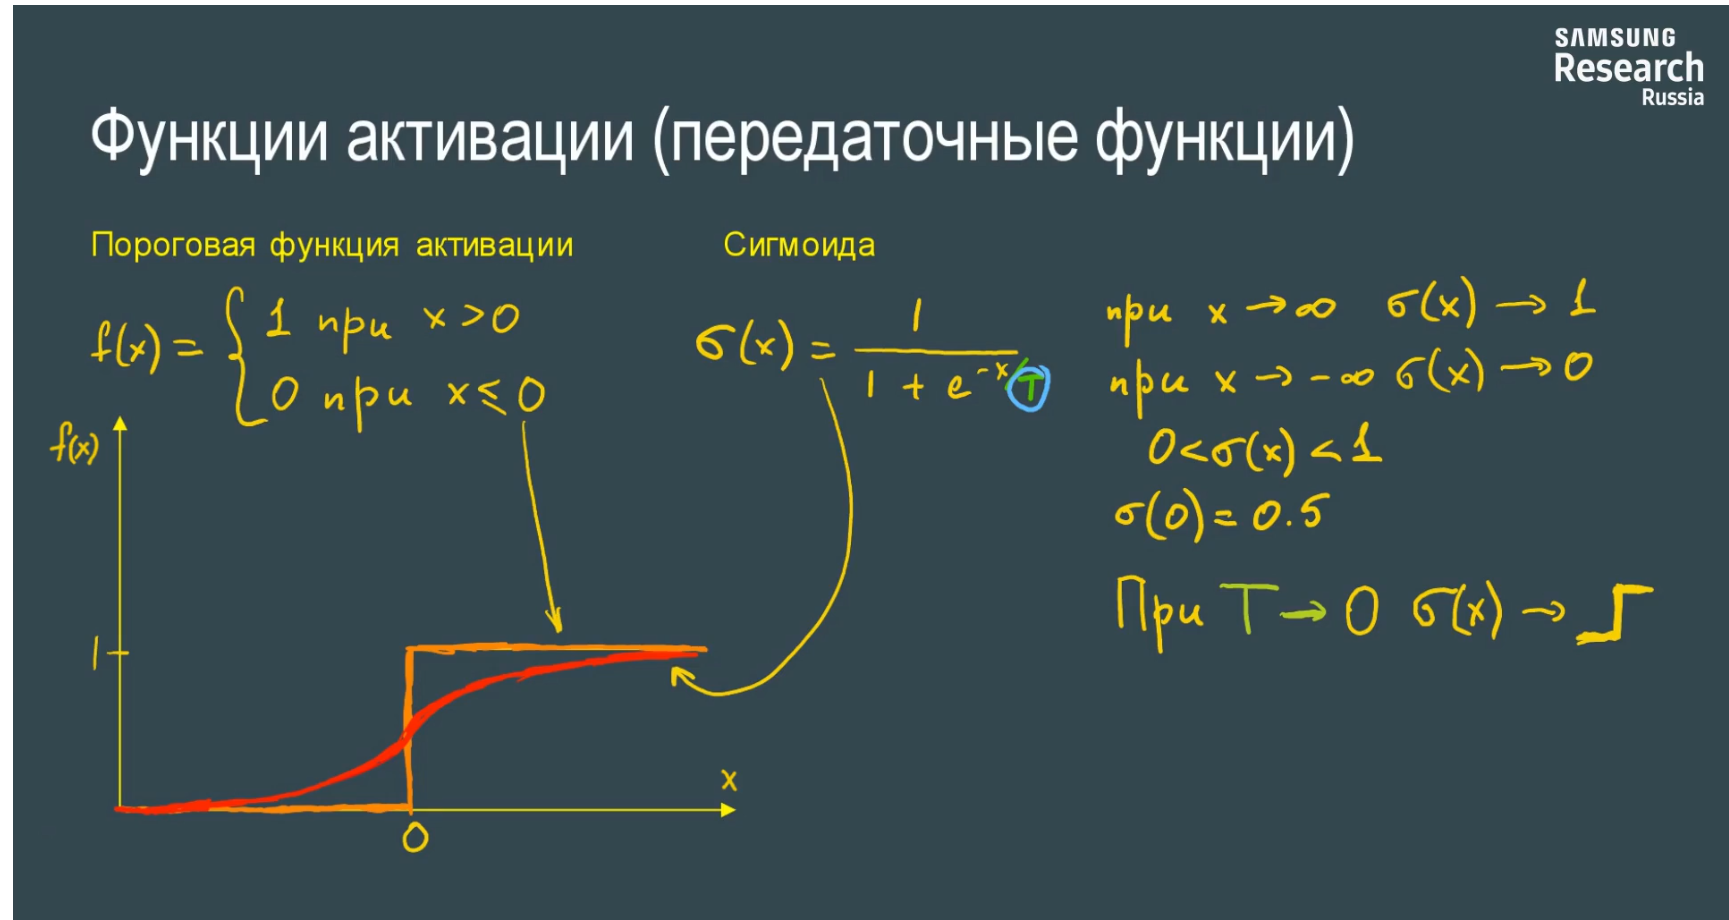 SAMSUNG
Research
Russia
Функции активации (передаточные функции)
Пороговая функция активации
f(x) = { 1 при x > 0
0 при x ⩽ 0
Сигмоида
σ(x) = 1 / (1 + e^(-x/T))
при x → ∞ σ(x) → 1
при x → -∞ σ(x) → 0
0 < σ(x) < 1
σ(0) = 0.5
При T → 0 σ(x) →
f(x)
1
x
0